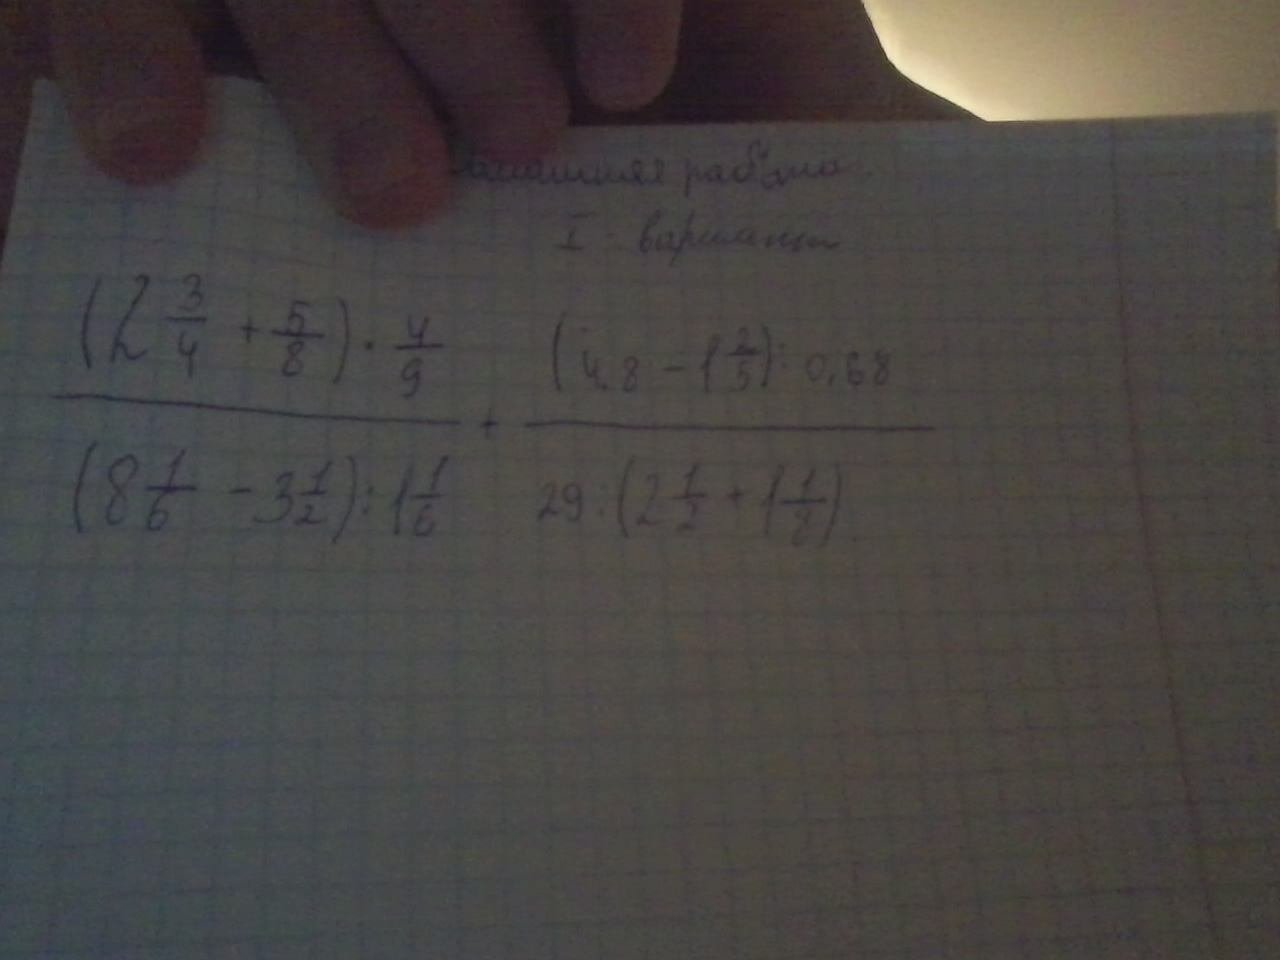 Домашняя работа.
I - вариант
(2 3/4 + 5/8) · 4/9 / (8 1/6 - 3 1/2) : 1 1/6 + (4,8 - 1 2/5) : 0,68 / 29 : (2 1/2 + 1 1/8)